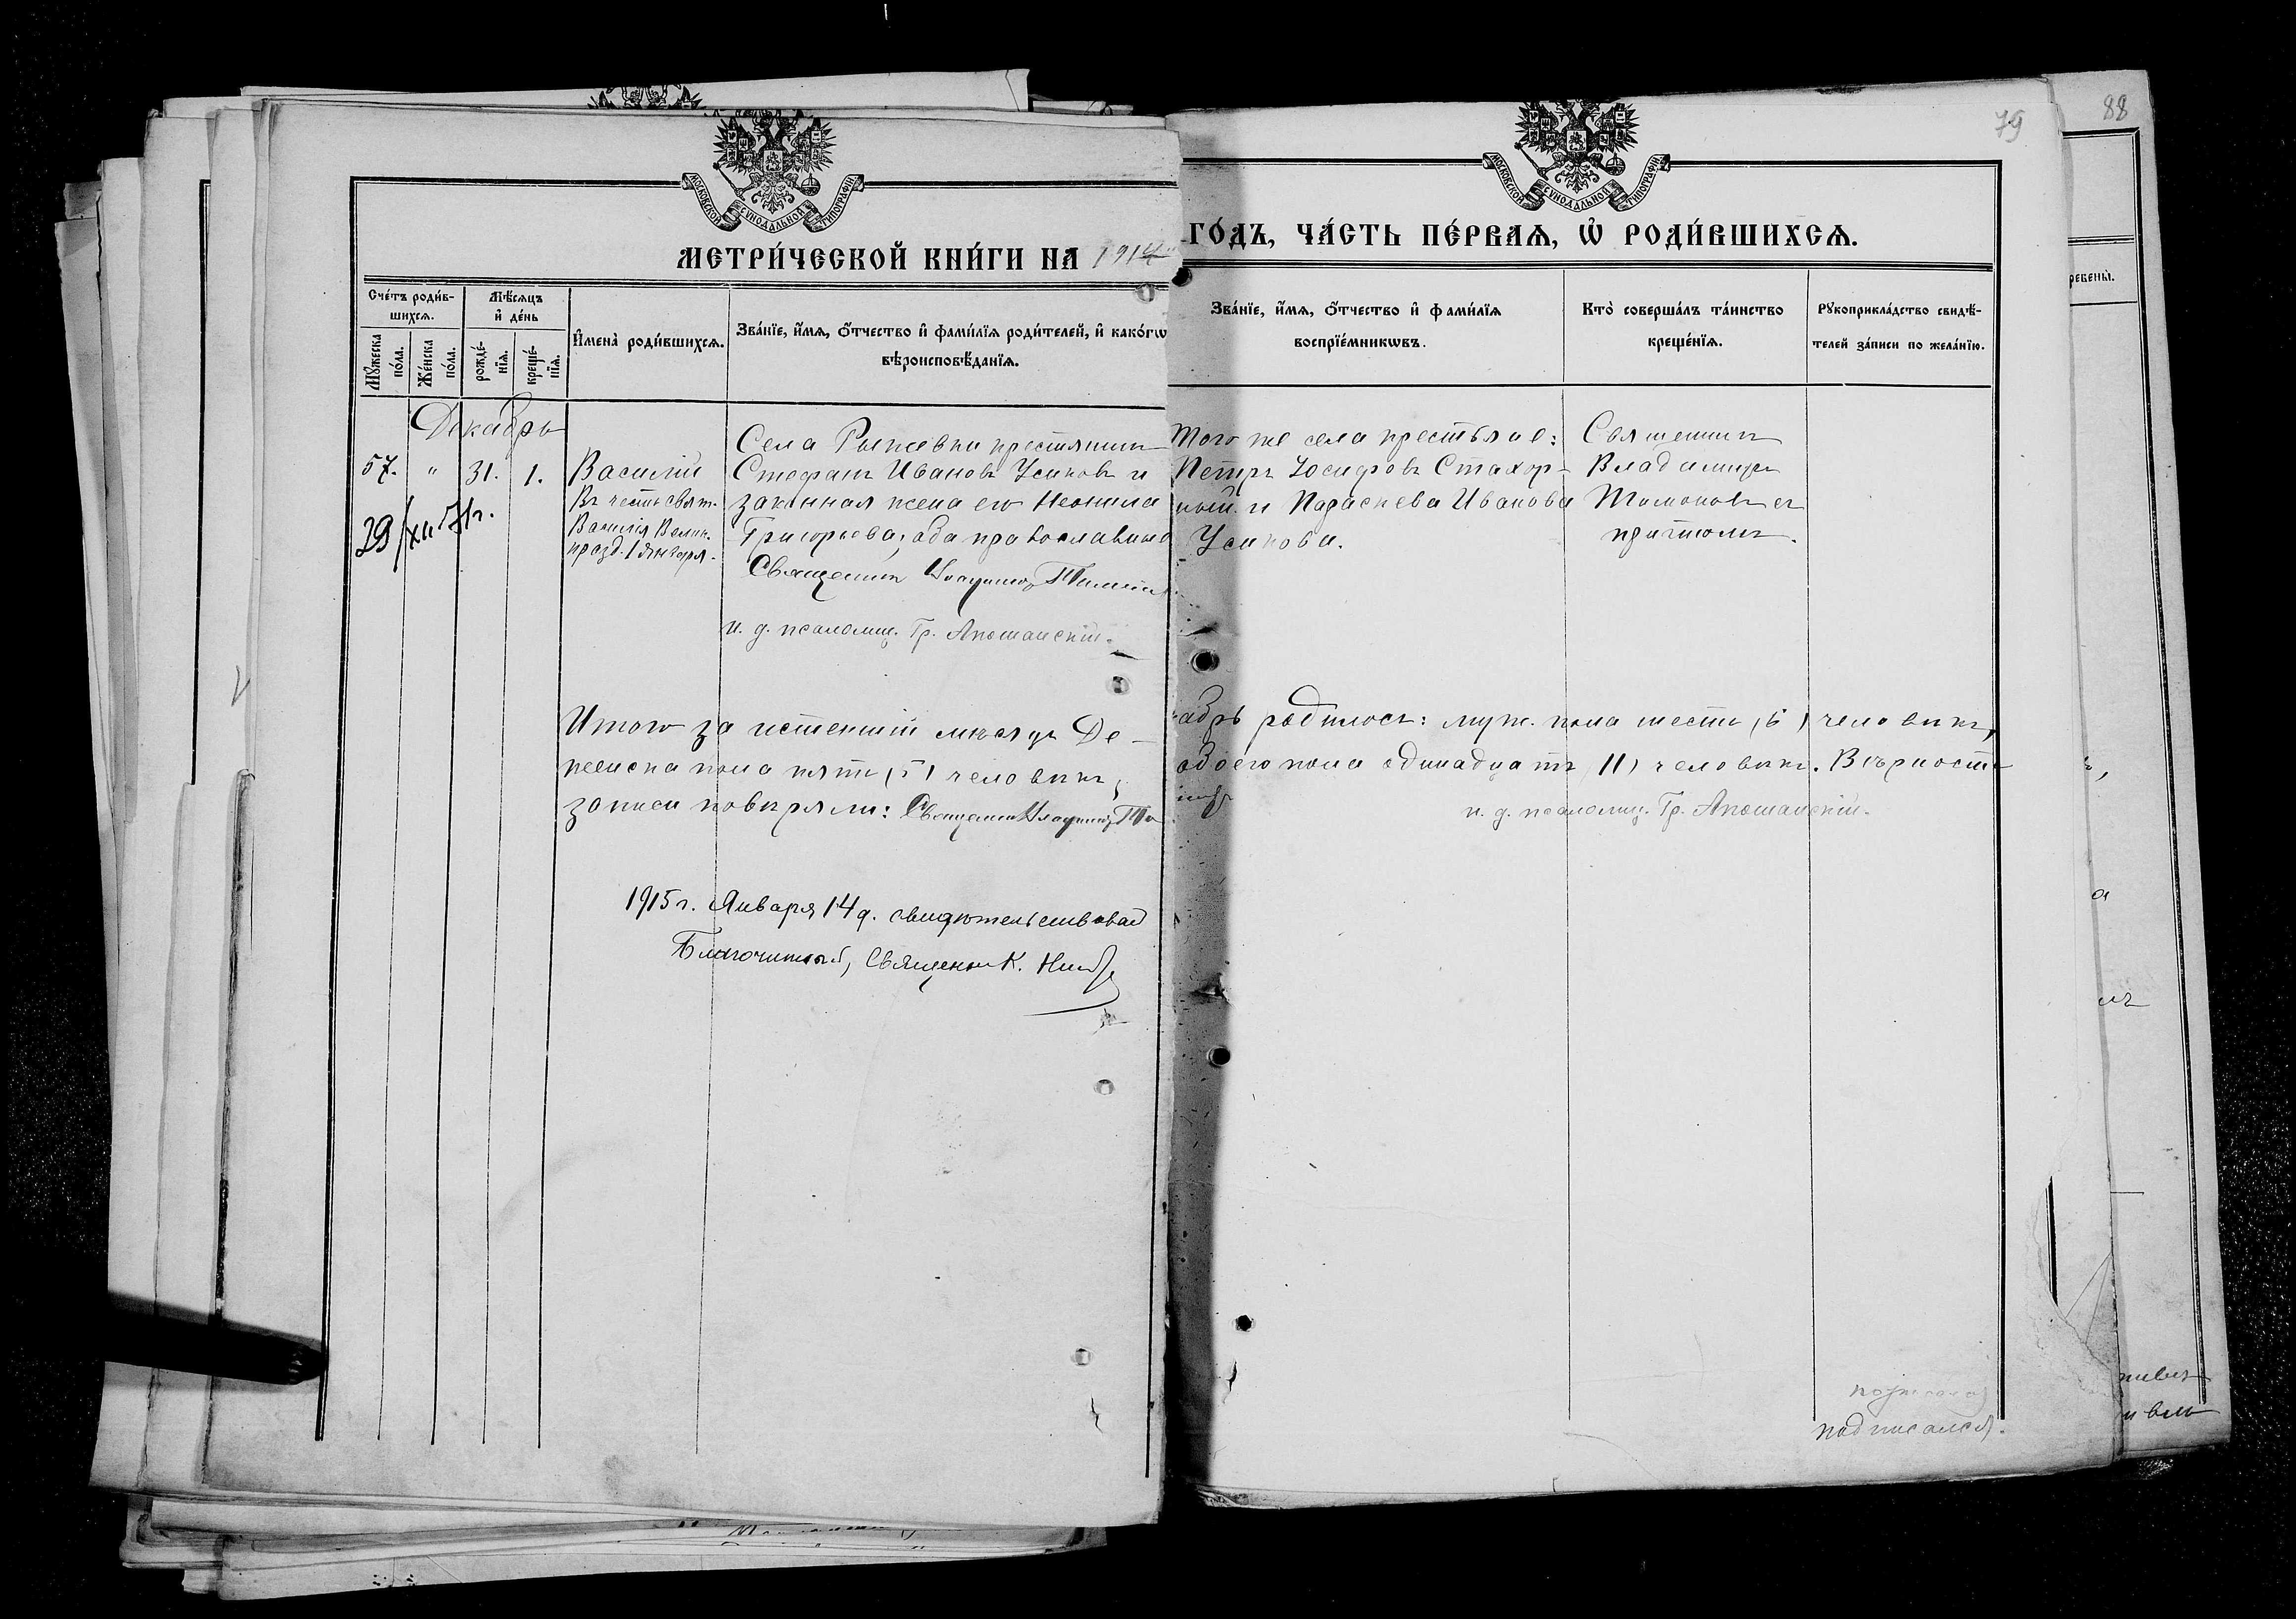 79
88
МОСКОВСКОЙ СѴНОДАЛЬНОЙ ТИПОГРАФІИ
МОСКОВСКОЙ СѴНОДАЛЬНОЙ ТИПОГРАФІИ
МЕТРИ́ЧЕСКОЙ КНИ́ГИ НА 1914
ГО́ДЪ, ЧА́СТЬ ПЕ́РВАѦ, Ѡ҆ РОДИ́ВШИХСѦ.
Сче́тъ роди́в-
шихсѧ.
Мꙋ́жеска по́ла.
Же́нска по́ла.
Мѣ́сѧцъ и҆ де́нь
рожде́-нїѧ.
креще́-нїѧ.
И҆мена̀ роди́вшихсѧ.
Зва́нїе, и҆́мѧ, ѻ҆́тчество и҆ фами́лїѧ роди́телей, и҆ како́гѡ
вѣроисповѣ́данїѧ.
Зва́нїе, и҆́мѧ, ѻ҆́тчество и҆ фами́лїѧ
воспрїе́мникѡвъ.
Кто̀ соверша́лъ та́инство
креще́нїѧ.
Рꙋкоприкла́дство свидѣ́-
телей за́писи по жела́нїю.
Декабрь
57. " 31. 1. Василій
Въ честь свят.
Василія Велик.
празд. 1 января.
29/XII 71г.
Села крестьянин
Стефанъ Ивановъ Усиковъ и
законная жена его Неонила
Григорьева, оба православные
Священникъ Владимиръ
и. д. псаломщ. Гр.
Того же села крестьяне:
Петръ Іосифовъ
и Параскева Иванова
Усикова.
Священникъ
Владимиръ
съ
причтомъ.
Итого за истекшій мѣсяцъ Де-
абрь родилось: муж. пола шесть (6) человѣкъ,
женска пола пять (5) человѣкъ,
обоего пола одинадцать (11) человѣкъ. Вѣрность
записи повѣряли: Священникъ Владимиръ
и. д. псаломщ. Гр.
1915 г. Января 14 д. свидѣтельствовал
Благочинный, Священник К.
подписался.